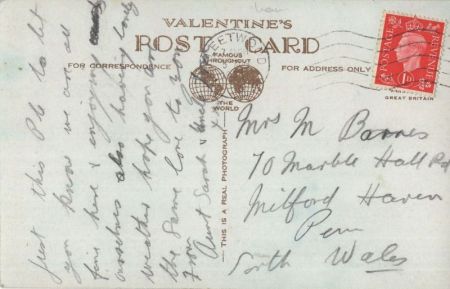 VALENTINE'S
POST CARD
FAMOUS THROUGHOUT
THE WORLD
FOR CORRESPONDENCE
FOR ADDRESS ONLY
FLEETWOOD
POSTAGE
REVENUE
1D
GREAT BRITAIN
THIS IS A REAL PHOTOGRAPH
Just this P.C. to let
you know we are all
fine here & enjoying
ourselves also having lovely
weather hope you are
the same love to you
From
Aunt Sarah &
Mrs M Barnes
70 Marble Hall Rd
Milford Haven
Pem
South Wales